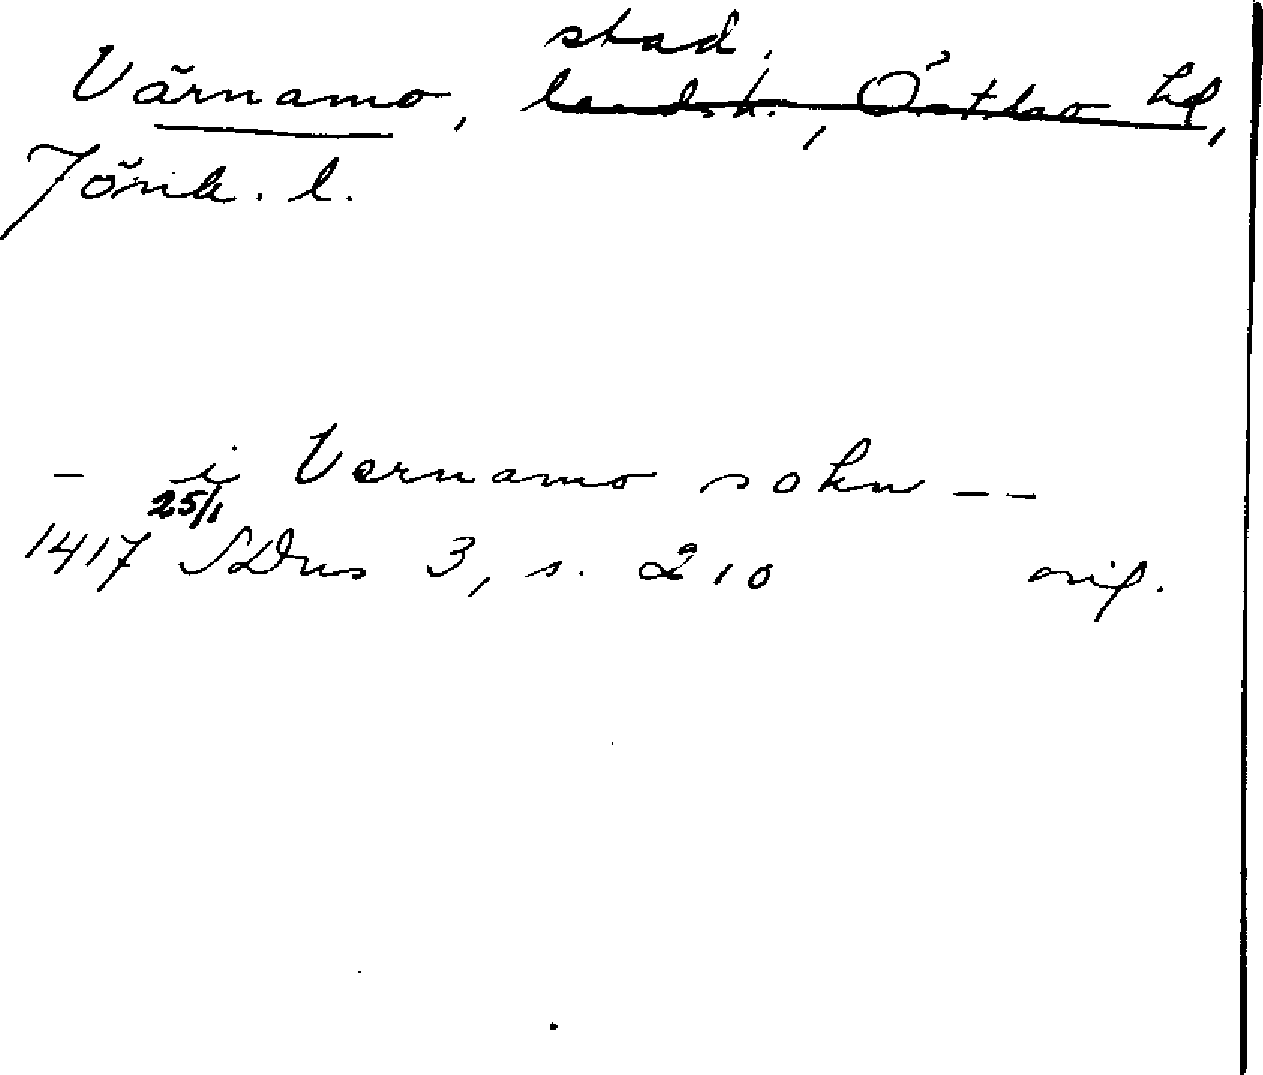 stad,
Värnamo, landsk., Östbo hd,
Jönk. l.
- i Vernamo sokn --
25/1
1417 SDns 3, s. 210 orig.